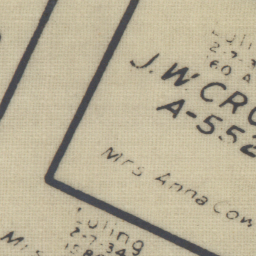 2-7-3
60 A
J.W. CRO
A-552
Mrs Anna Cow
Luling
2-7-34
Mrs